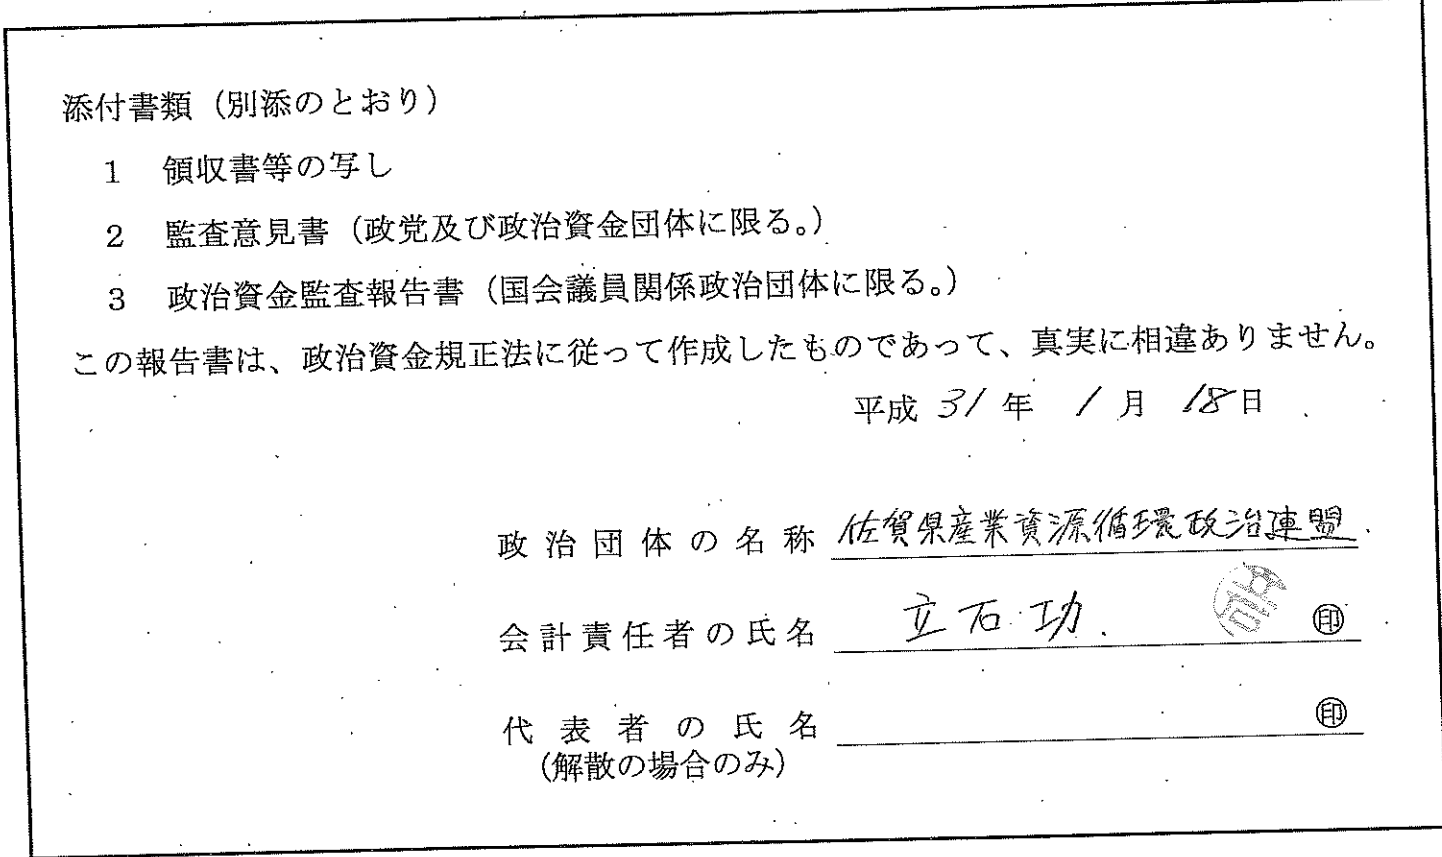 添付書類（別添のとおり）
1 領収書等の写し
2 監査意見書（政党及び政治資金団体に限る。）
3 政治資金監査報告書（国会議員関係政治団体に限る。）
この報告書は、政治資金規正法に従って作成したものであって、真実に相違ありません。
平成 31 年 1 月 18 日
政治団体の名称 佐賀県産業資源循環政治連盟
会計責任者の氏名 立石功 ㊞
代表者の氏名 ㊞
（解散の場合のみ）